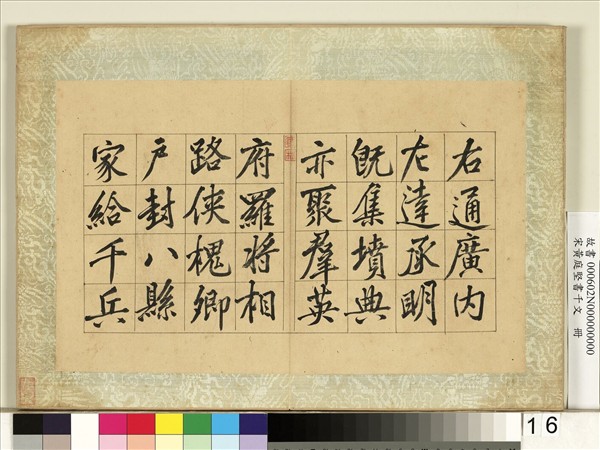 右通廣內
左達承明
既集墳典
亦聚群英
府羅將相
路俠槐卿
戶封八縣
家給千兵
故書 000602N000000000
宋黃庭堅書千文 冊
16